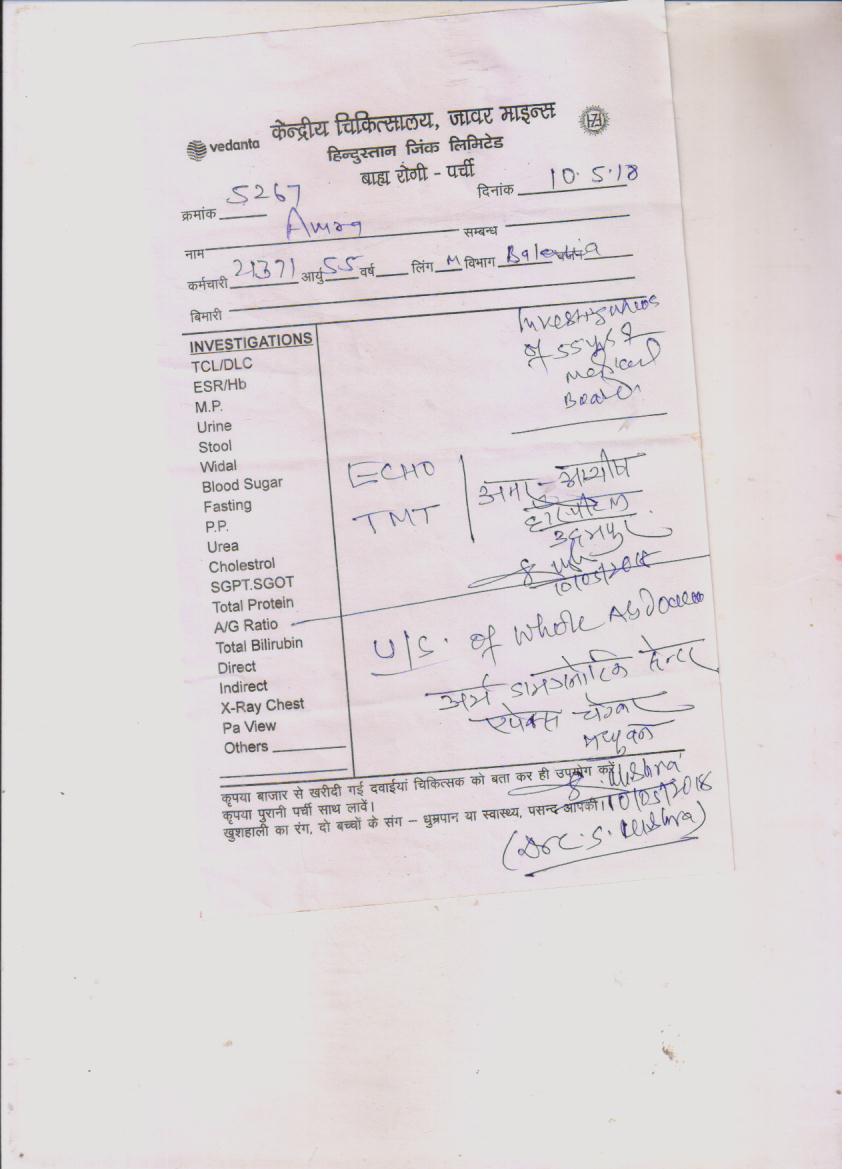 vedanta केन्द्रीय चिकित्सालय, जावर माइन्स
हिन्दुस्तान जिंक लिमिटेड
बाह्य रोगी - पर्ची
क्रमांक 5267 दिनांक 10.5.18
नाम सम्बन्ध
कर्मचारी 21371 आयु 55 वर्ष लिंग M विभाग
बिमारी
INVESTIGATIONS
Investigations
of 55 yrs
Medical
Board
TCL/DLC
ESR/Hb
M.P.
Urine
Stool
Widal
Blood Sugar
Fasting
P.P.
Urea
Cholestrol
SGPT.SGOT
Total Protein
A/G Ratio
Total Bilirubin
Direct
Indirect
X-Ray Chest
Pa View
Others
ECHO
TMT
हॉस्पीटल
उदयपुर
10/05/2018
U/S. of Whole Abdomen
डायग्नोटिक सेन्टर
मधुवन
कृपया बाजार से खरीदी गई दवाईयां चिकित्सक को बता कर ही उपयोग करें
कृपया पुरानी पर्ची साथ लावें।
खुशहाली का रंग, दो बच्चों के संग – धुम्रपान या स्वास्थ्य, पसन्द आपकी।
Mishra
10/05/2018
(Dr C.S. Mishra)